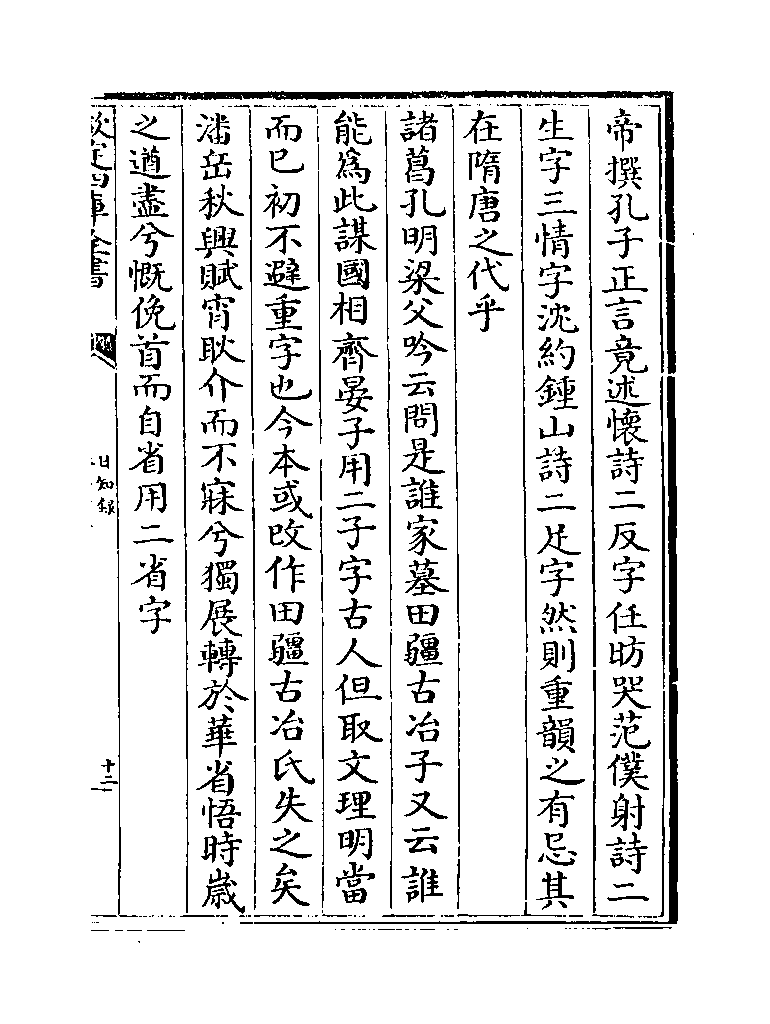 帝撰孔子正言竟述懷詩二反字任昉哭范僕射詩二
生字三情字沈約鍾山詩二足字然則重韻之有忌其
在隋唐之代乎
諸葛孔明梁父吟云問是誰家墓田疆古冶子又云誰
能為此謀國相齊晏子用二子字古人但取文理明當
而已初不避重字也今本或改作田疆古冶氏失之矣
潘岳秋興賦宵耿介而不寐兮獨展轉於華省悟時歲
之遒盡兮慨俛首而自省用二省字
欽定四庫全書
日知錄
十二